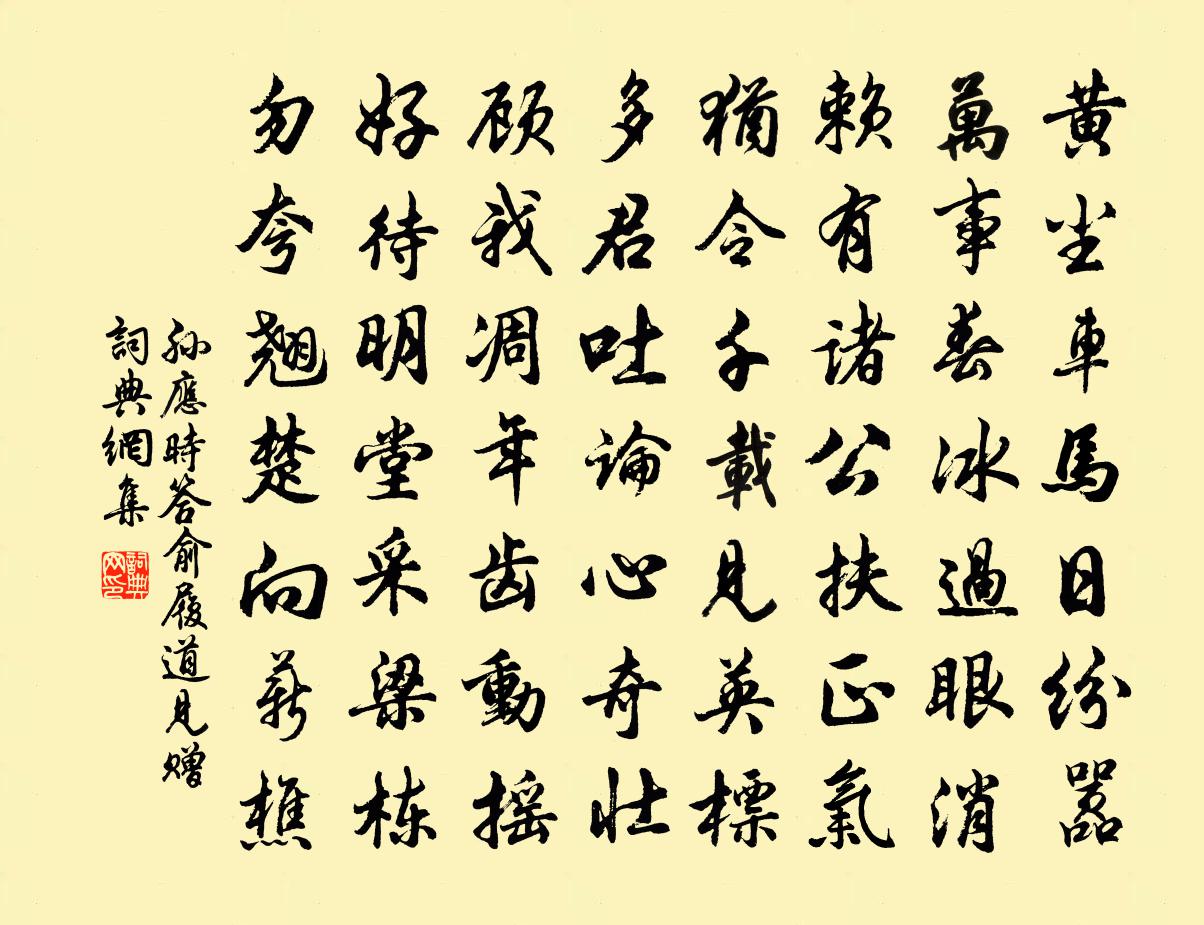 黄尘車馬日纷嚣
萬事春冰過眼消
赖有诸公扶正氣
猶令千載見英標
多君吐論心奇壮
顾我凋年齿動摇
好待明堂采梁栋
勿夸翘楚向薪樵
孙應時答俞履道見赠
詞典網集
詞典网印